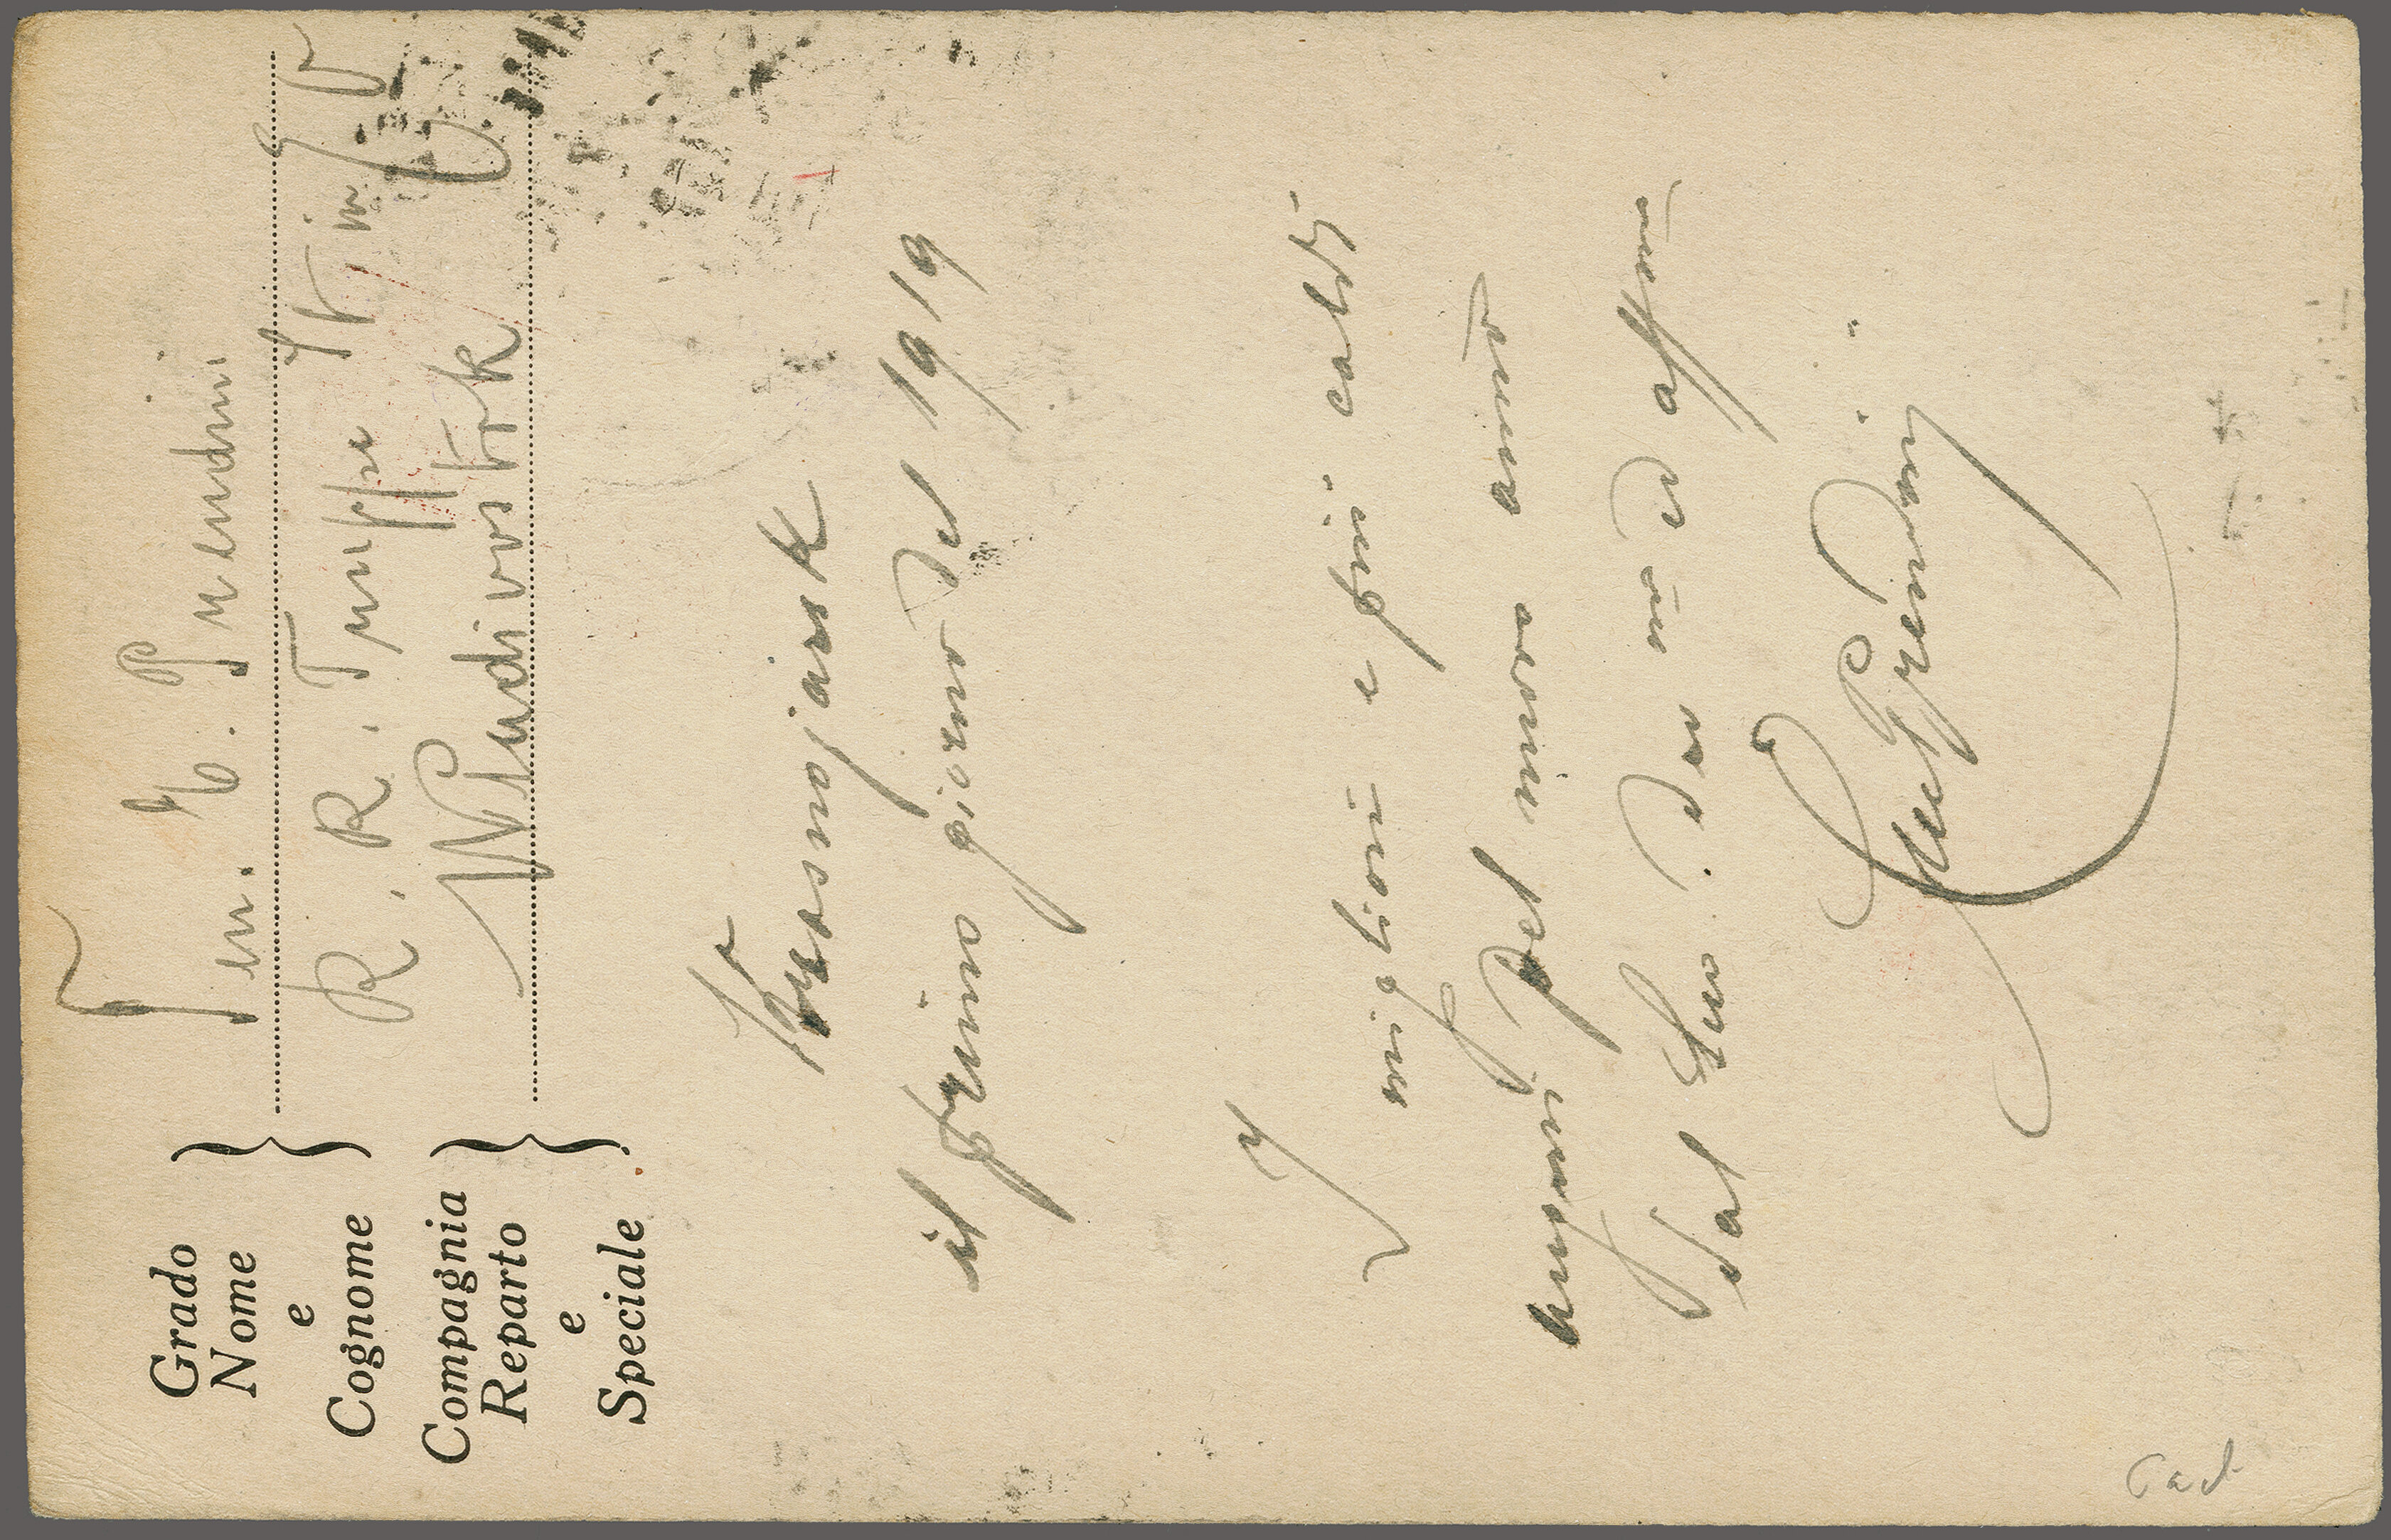 Grado
Nome
e
Cognome
Ten. E. Prendini
Compagnia
Reparto
e
Speciale
R. R. Truppe It. in
Wladivostok
Krasnojarsk
il primo giorno del 1919
I migliori e più caldi
auguri pel nuovo anno
dal Suo dev mo ed aff mo
Prendini